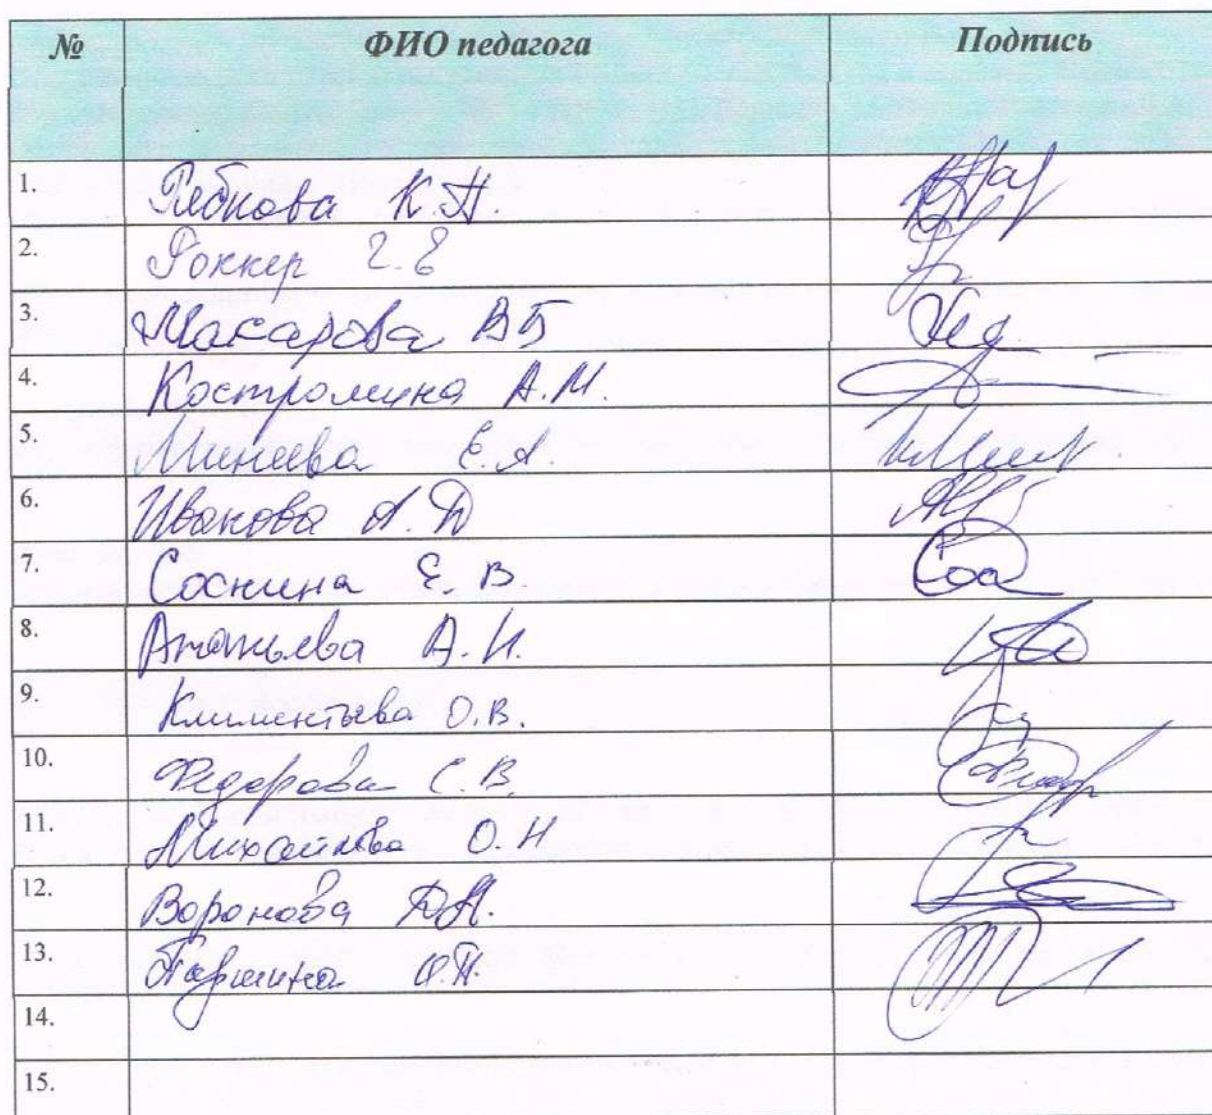 № ФИО педагога Подпись
1. Рябкова К.П.
2. Роккер Г.Е
3. Макарова В Б
4. Костромина А.М.
5. Минеева Е.А.
6. Иванова А.Д
7. Соснина Е. В.
8. Ананьева А.И.
9. Климентьева О.В.
10. Федорова С.В.
11. Михайлова О.Н
12. Воронова Д.А.
13. Паршина О.П.
14.
15.